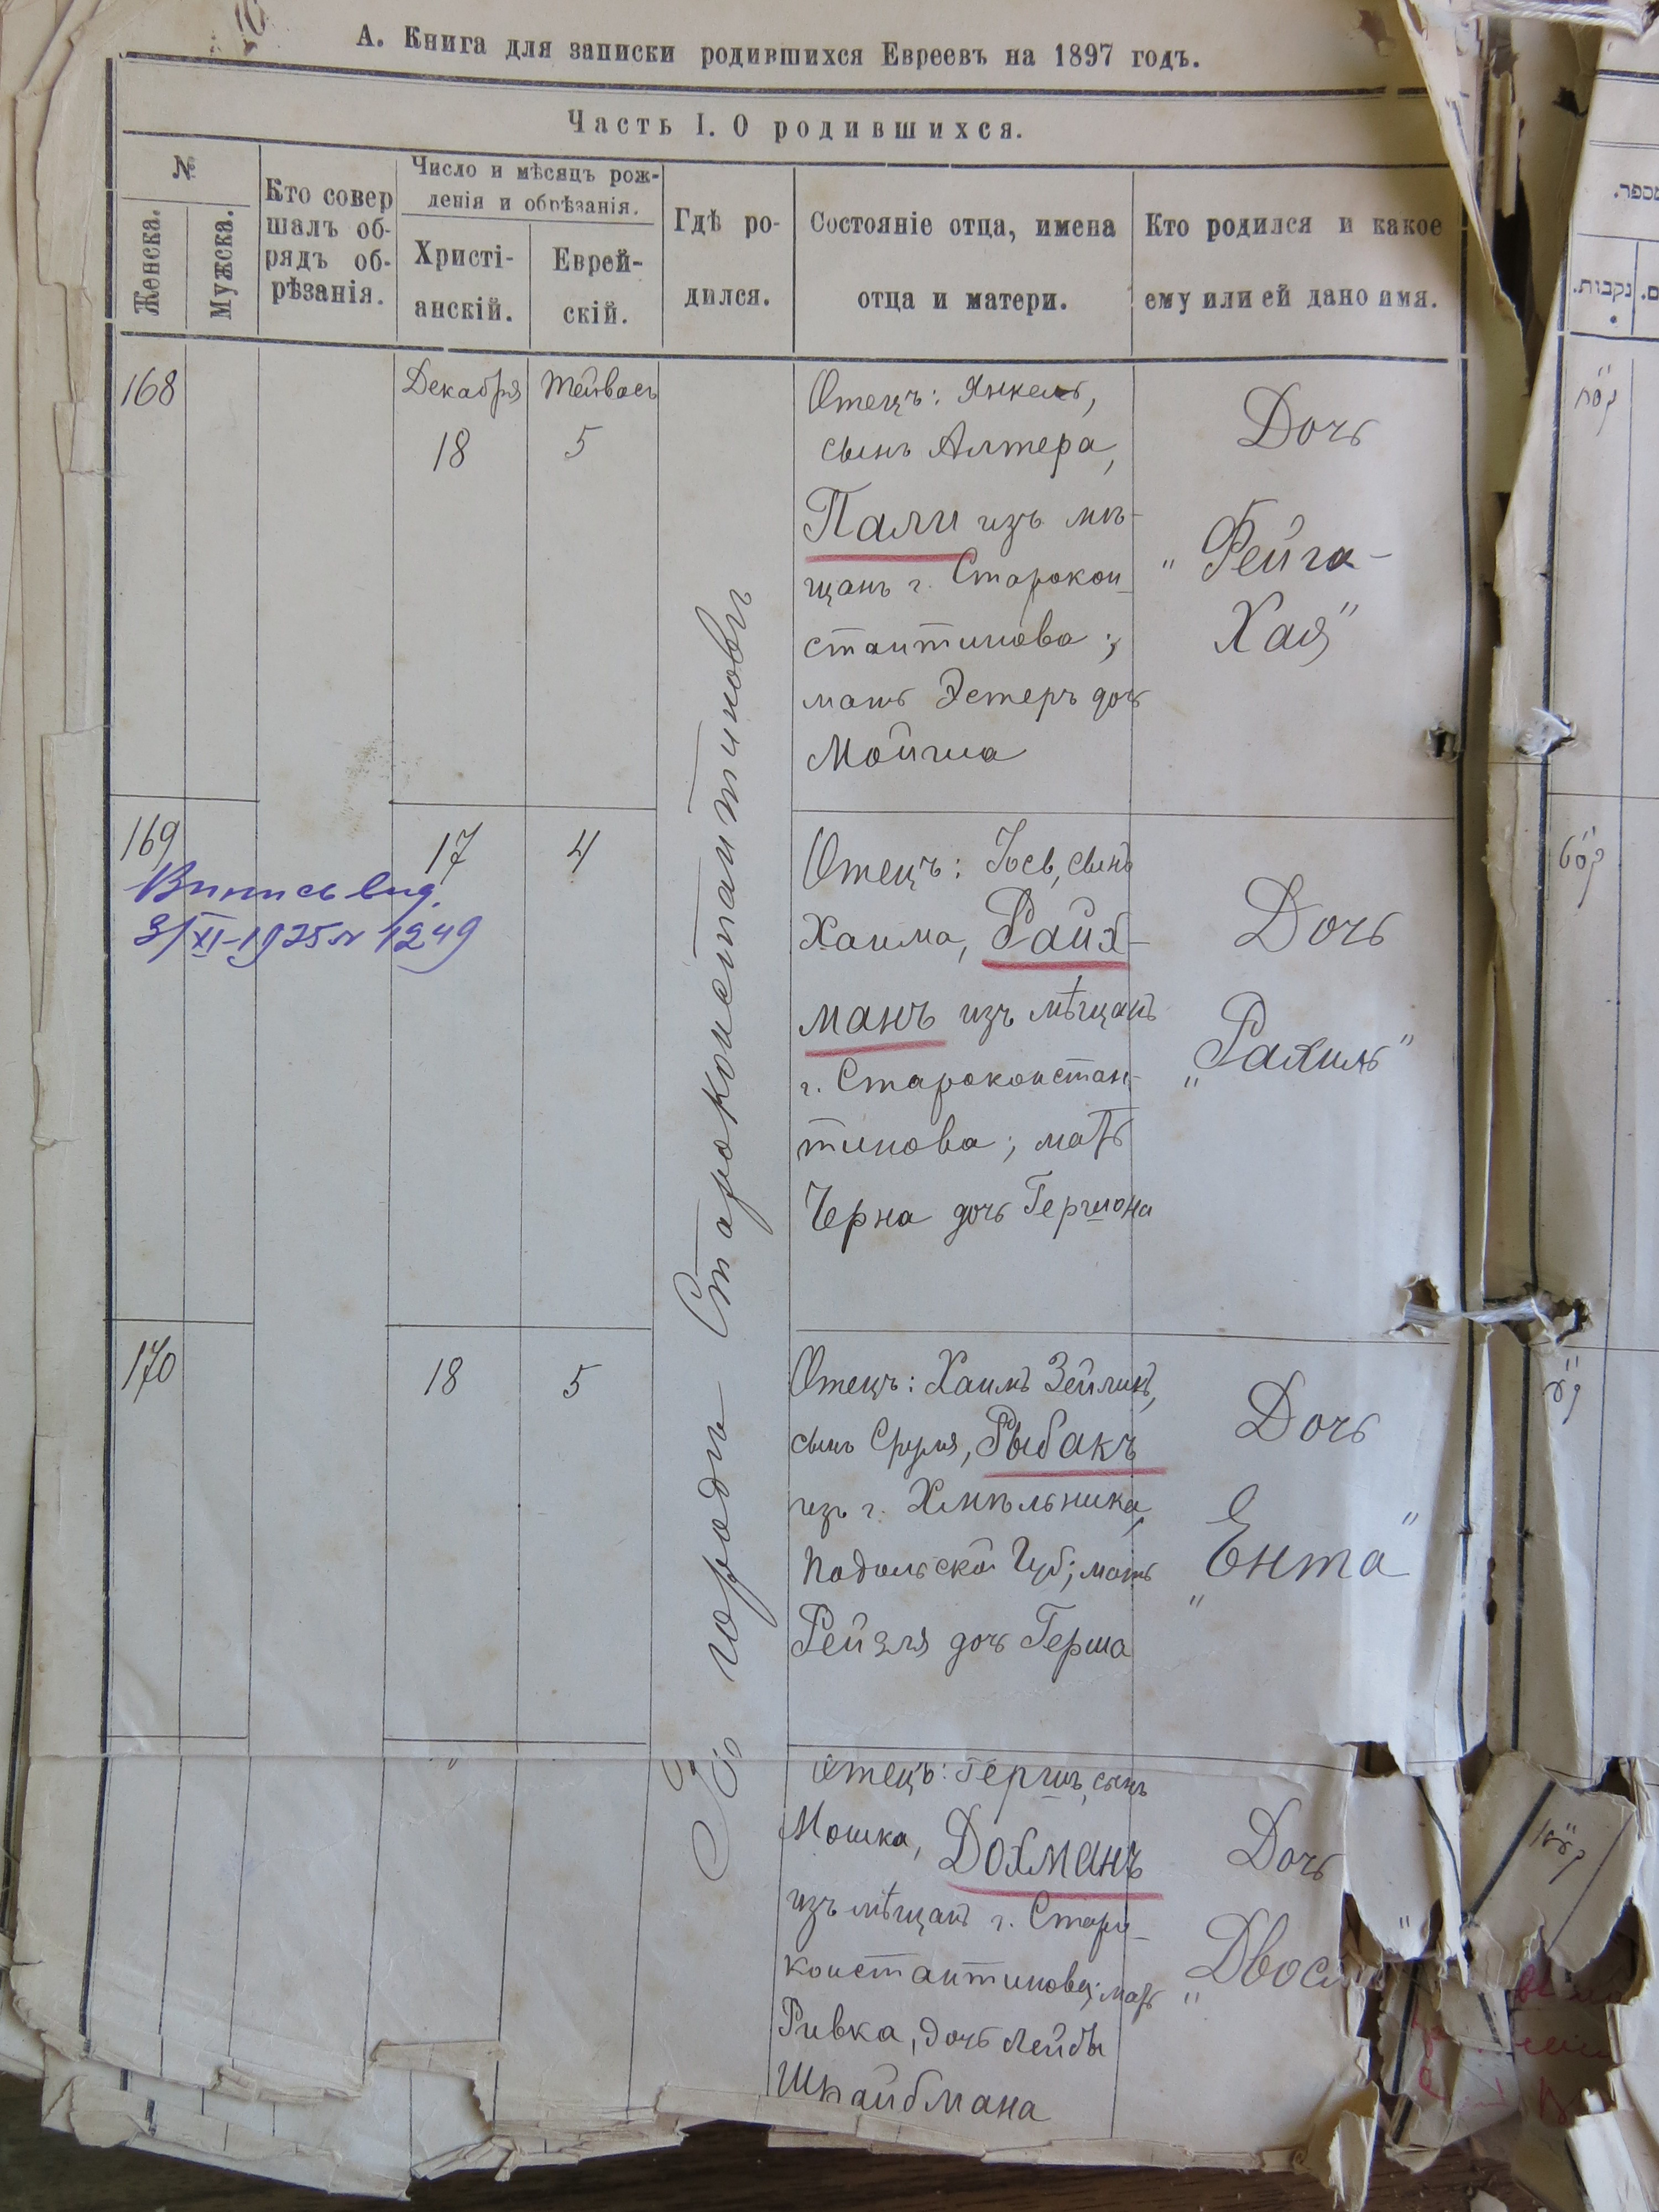 А. Книга для записки родившихся Евреевъ на 1897 годъ.
Часть I. О родившихся.
№
Женска.
Мужска.
Кто совер
шалъ об-
рядъ об-
рѣзанія.
Число и мѣсяцъ рож-
денія и обрѣзанія.
Христі-
анскій.
Еврей-
скій.
Гдѣ ро-
дился.
Состояніе отца, имена
отца и матери.
Кто родился и какое
ему или ей дано имя.
נקבות.
168
Декабря
18
Тейвесъ
5
Отецъ: Янкель,
сынъ Алтера,
Пали изъ мѣ-
щанъ г. Старокон-
стантинова;
мать Эстеръ дочь
Мойша
Дочь
"Фейга-
Хая"
Въ городѣ Староконстантиновѣ
169
17
4
Отецъ: Іось, сынъ
Хаима, Райх-
манъ изъ мѣщанъ
г. Староконстан-
тинова; мать
Черна дочь Гершона
Дочь
"Рахиль"
170
18
5
Отецъ: Хаимъ Зейликъ,
сынъ Сруля, Рыбакъ
изъ г. Хмѣльника,
Подольской Губ; мать
Рейзля дочь Герша
Дочь
"Ента"
Отецъ: Гершъ, сынъ
Мошка, Дохманъ
изъ мѣщанъ г. Старо-
константинова; мать
Ривка, дочь Лейбы
Шпайбмана
Дочь